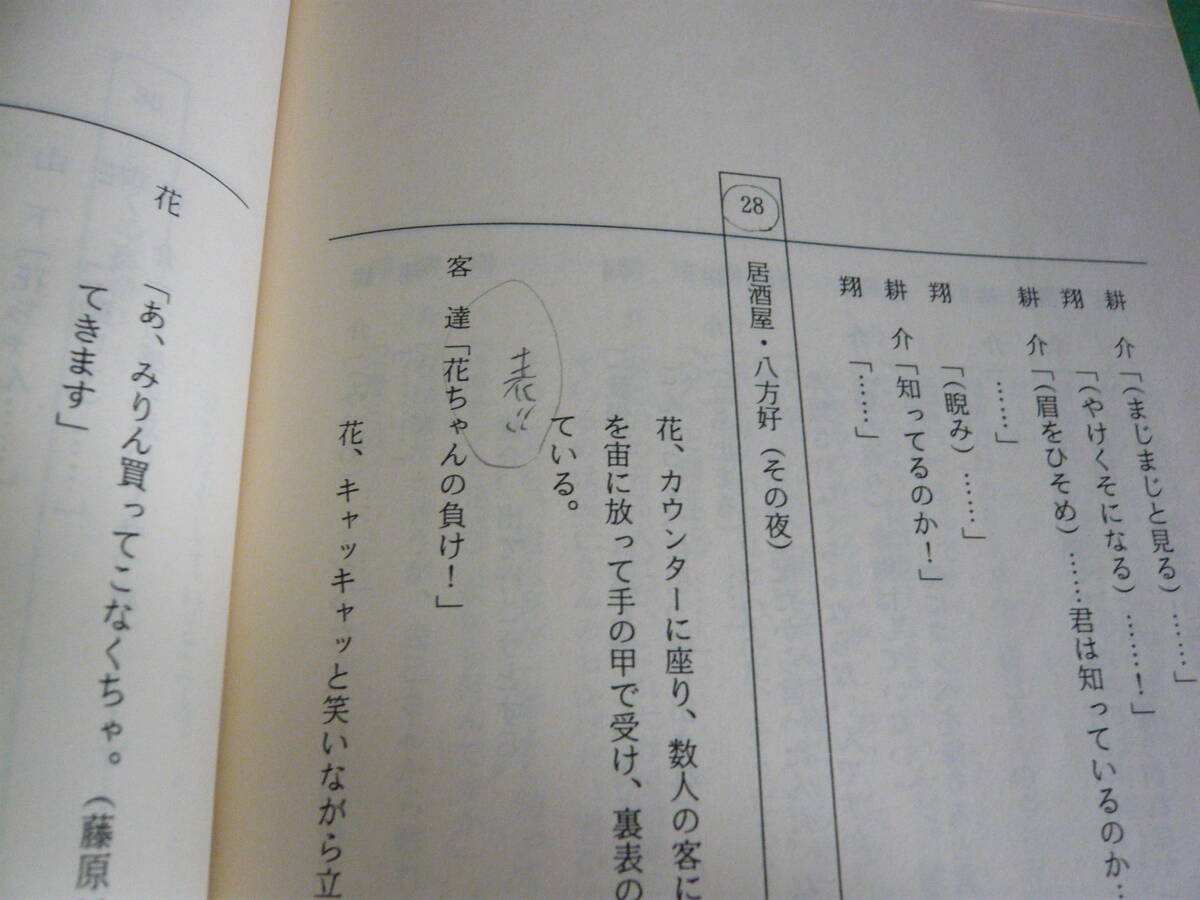 耕介「(まじまじと見る)……」
翔「(やけくそになる)……！」
耕介「(眉をひそめ)……君は知っているのか…
……」
翔「(睨み)……」
耕介「知ってるのか！」
翔「……」
28 居酒屋・八方好(その夜)
花、カウンターに座り、数人の客に
を宙に放って手の甲で受け、裏表の
ている。
表!!
客達「花ちゃんの負け！」
花、キャッキャッと笑いながら立
花「あ、みりん買ってこなくちゃ。(藤原
てきます」